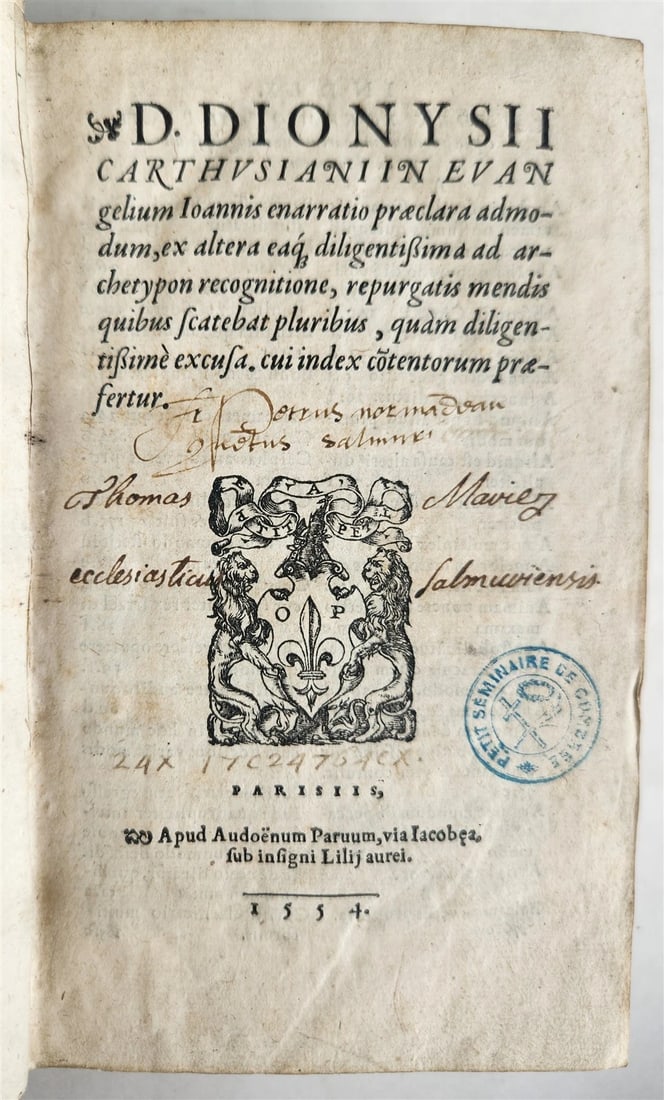 D. DIONYSII
CARTHVSIANI IN EVAN
gelium Ioannis enarratio præclara admo-
dum, ex altera eaq́ꝫ diligentißima ad ar-
chetypon recognitione, repurgatis mendis
quibus ſcatebat pluribus, quàm diligen-
tißimè excuſa. cui index cõtentorum præ-
fertur.
Petrus
Thomas
ecclesiasticus salmuriensis
O P
PETIT SÉMINAIRE DE
PARISIIS,
Apud Audoënum Paruum, via Iacobęa,
ſub inſigni Lilij aurei.
1554.